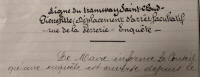 Ligne du tramway Saint-Cloud-
Pierrefitte, déplacement d'arrêt facultatif
rue de la Verrerie - Enquête -
De Maire informe le Conseil
qu'une enquête est ouverte depuis le